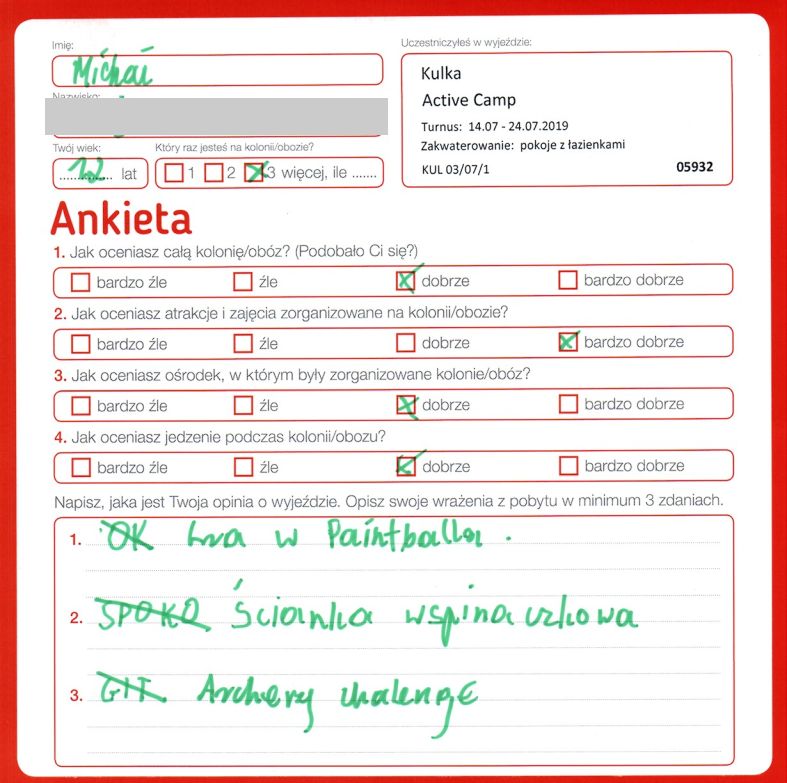 Imię:
Uczestniczyłeś w wyjeździe:
Michał
Kulka
Active Camp
Nazwisko:
Turnus: 14.07 - 24.07.2019
Zakwaterowanie: pokoje z łazienkami
KUL 03/07/1 05932
Twój wiek:
Który raz jesteś na kolonii/obozie?
lat
1 2 3 więcej, ile .......
Ankieta
1. Jak oceniasz całą kolonię/obóz? (Podobało Ci się?)
bardzo źle źle dobrze bardzo dobrze
2. Jak oceniasz atrakcje i zajęcia zorganizowane na kolonii/obozie?
bardzo źle źle dobrze bardzo dobrze
3. Jak oceniasz ośrodek, w którym były zorganizowane kolonie/obóz?
bardzo źle źle dobrze bardzo dobrze
4. Jak oceniasz jedzenie podczas kolonii/obozu?
bardzo źle źle dobrze bardzo dobrze
Napisz, jaka jest Twoja opinia o wyjeździe. Opisz swoje wrażenia z pobytu w minimum 3 zdaniach.
1. OK w Paintballa.
2. SPOKO Ścianka wspinaczkowa
3. GIT Archery chalenge